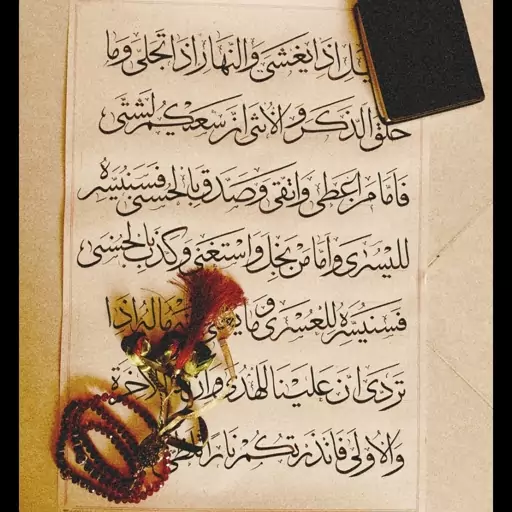 يل اذا يغشى والنهار اذا تجلى وما
خلق الذكر والانثى ان سعيكم لشتى
فاما من اعطى واتقى وصدق بالحسنى فسنيسره
لليسرى واما من بخل واستغنى وكذب بالحسنى
فسنيسره للعسرى وما ماله اذا
تردى ان علينا للهدى
والاولى فانذرتكم نارا